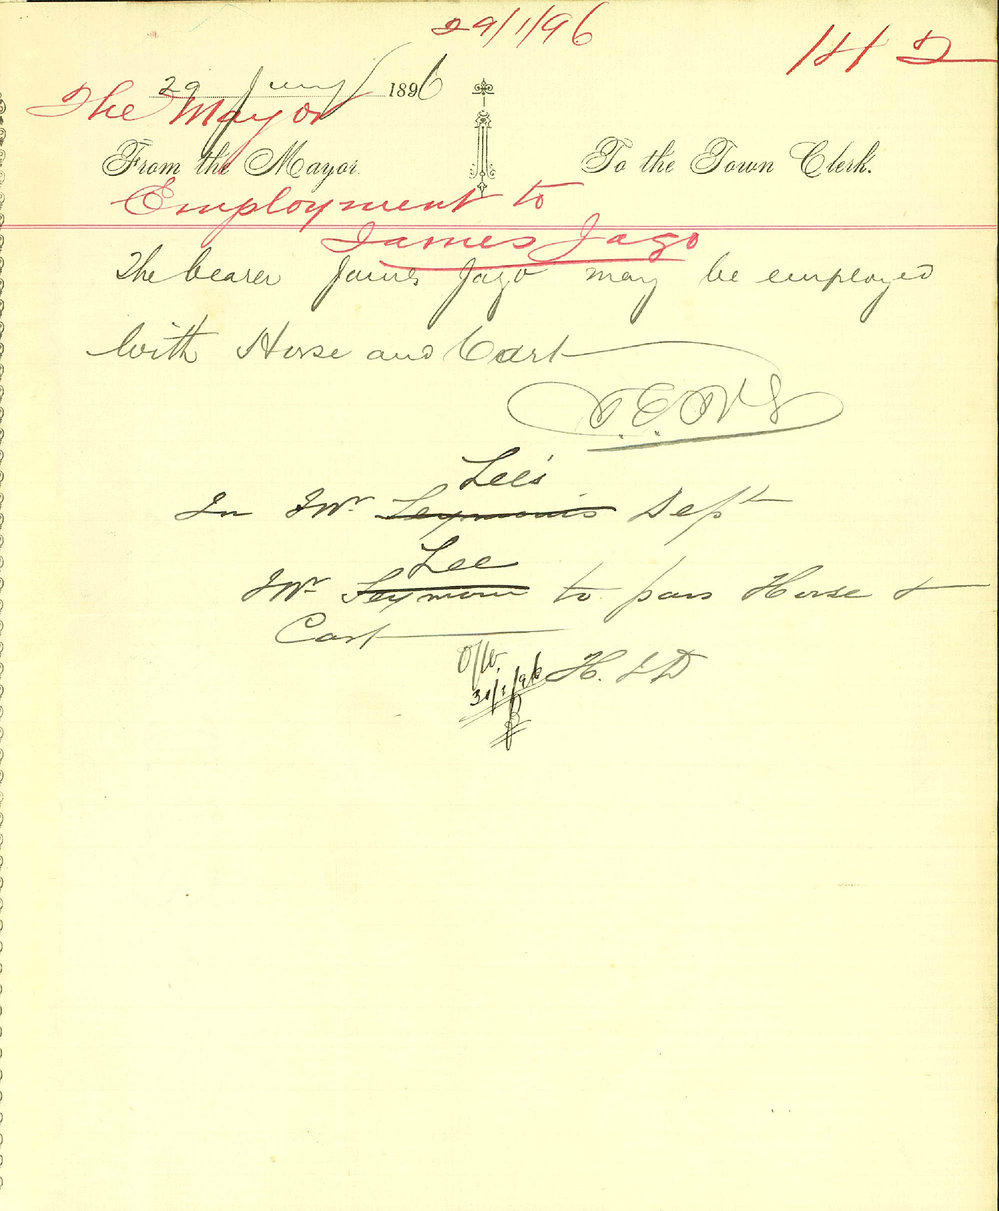 29/1/96
14 D
29 Jany 1896
The Mayor
From the Mayor. To the Town Clerk.
Employment to
James Jago
The bearer James Jago may be employed
with Horse and Cart
Lee's
In Mr Seymour's Dept
Lee
Mr Seymour to pass Horse &
Cart
H. S D
30/1/96